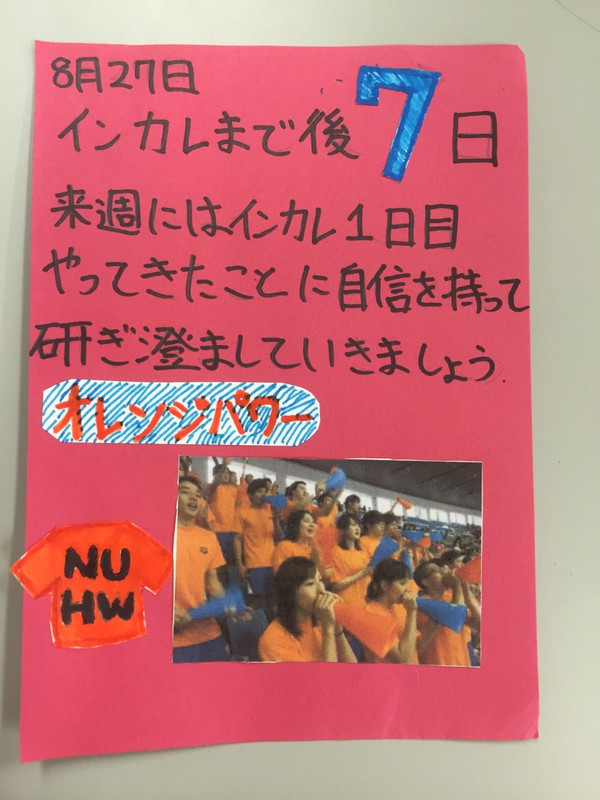 8月27日
インカレまで後7日
来週にはインカレ1日目
やってきたことに自信を持って
研ぎ澄ましていきましょう.
オレンジパワー
NU
HW